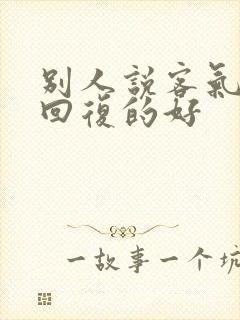 别人説客氣
回復的好
一故事一个坑